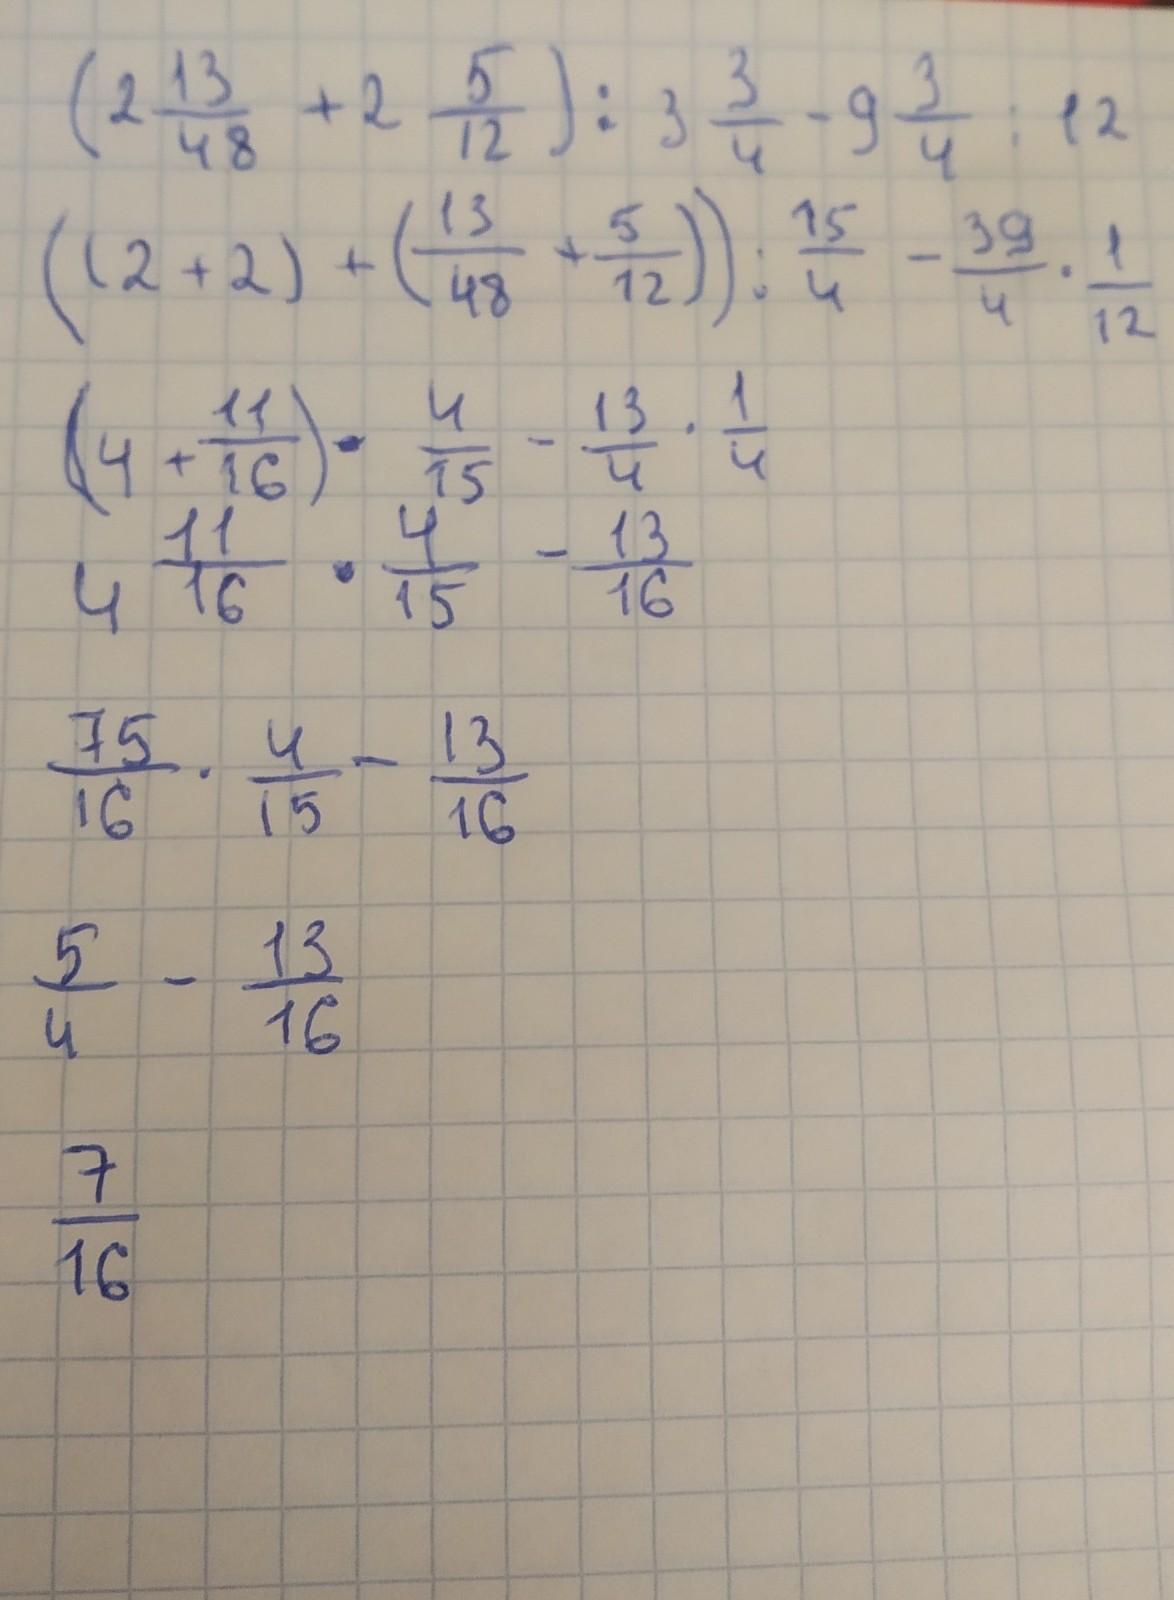 (2 13/48 + 2 5/12) : 3 3/4 - 9 3/4 : 12
((2 + 2) + (13/48 + 5/12)) : 15/4 - 39/4 · 1/12
(4 + 11/16) · 4/15 - 13/4 · 1/4
4 11/16 · 4/15 - 13/16
75/16 · 4/15 - 13/16
5/4 - 13/16
7/16